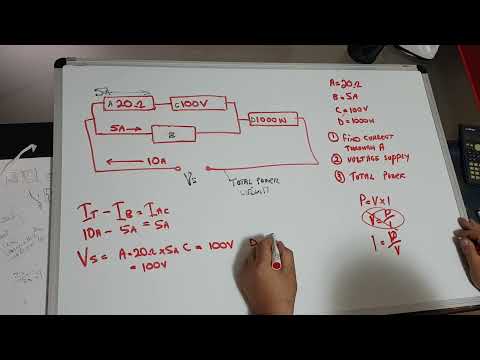 5A
A 20Ω
C 100V
D 1000W
5A
B
10A
Vs
TOTAL POWER
CIRCUIT
A = 20Ω
B = 5A
C = 100V
D = 1000W
① FIND CURRENT
THROUGH A
② VOLTAGE SUPPLY
③ TOTAL POWER
P = V × I
V = P/I
I = P/V
IT - IB = IAC
10A - 5A = 5A
VS = A = 20Ω × 5A C = 100V D
= 100V